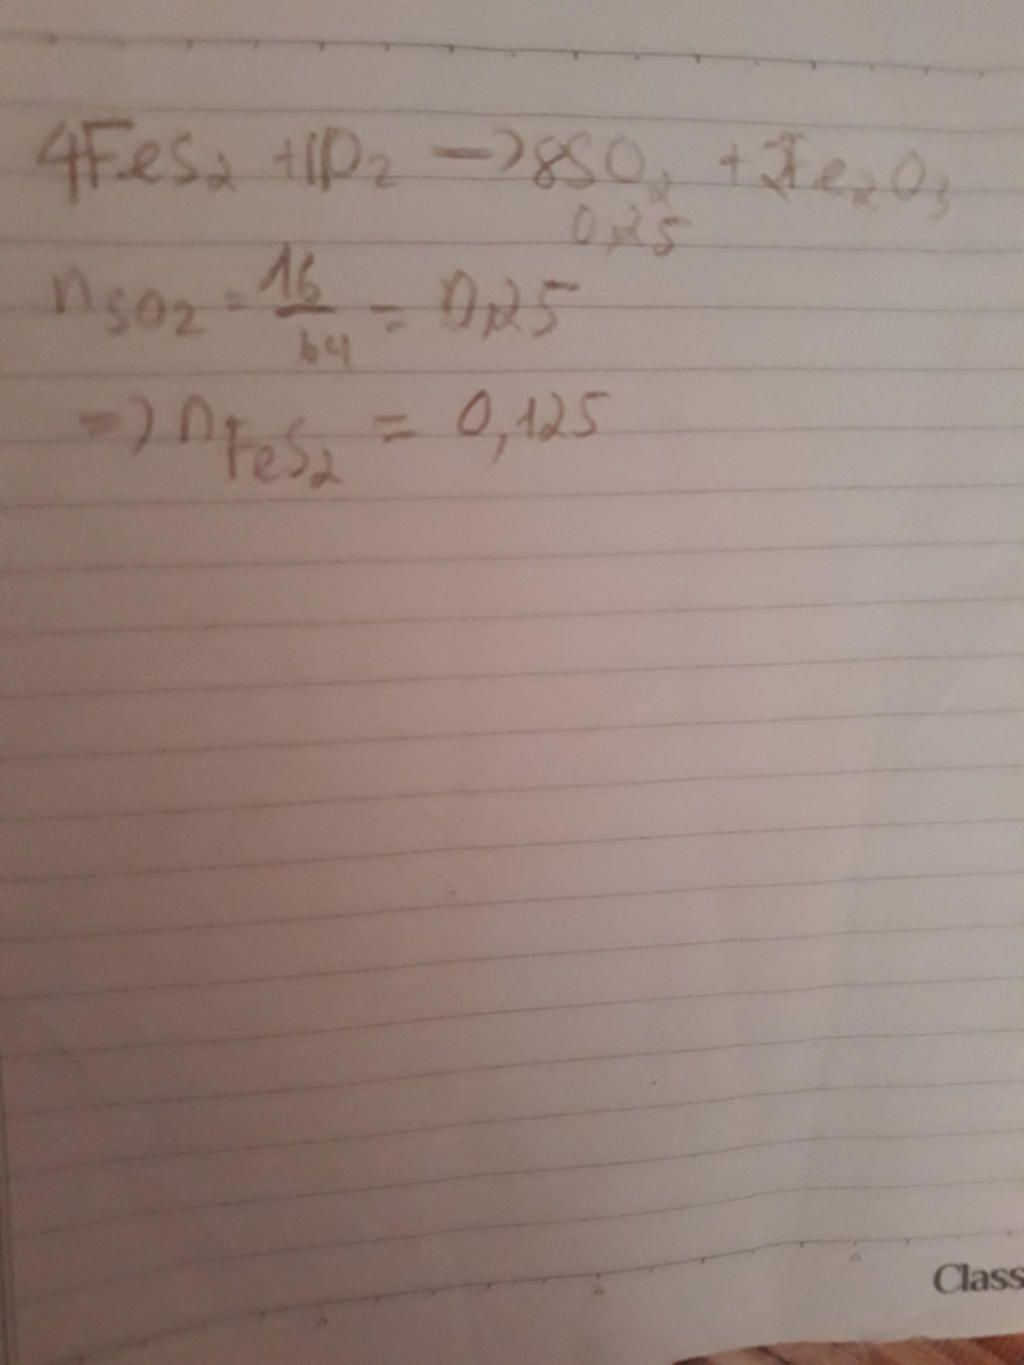 4FeS₂ + 11O₂ → 8SO₂ + 2Fe₂O₃
0,25
nSO₂ = 16/64 = 0,25
=> nFeS₂ = 0,125
Class